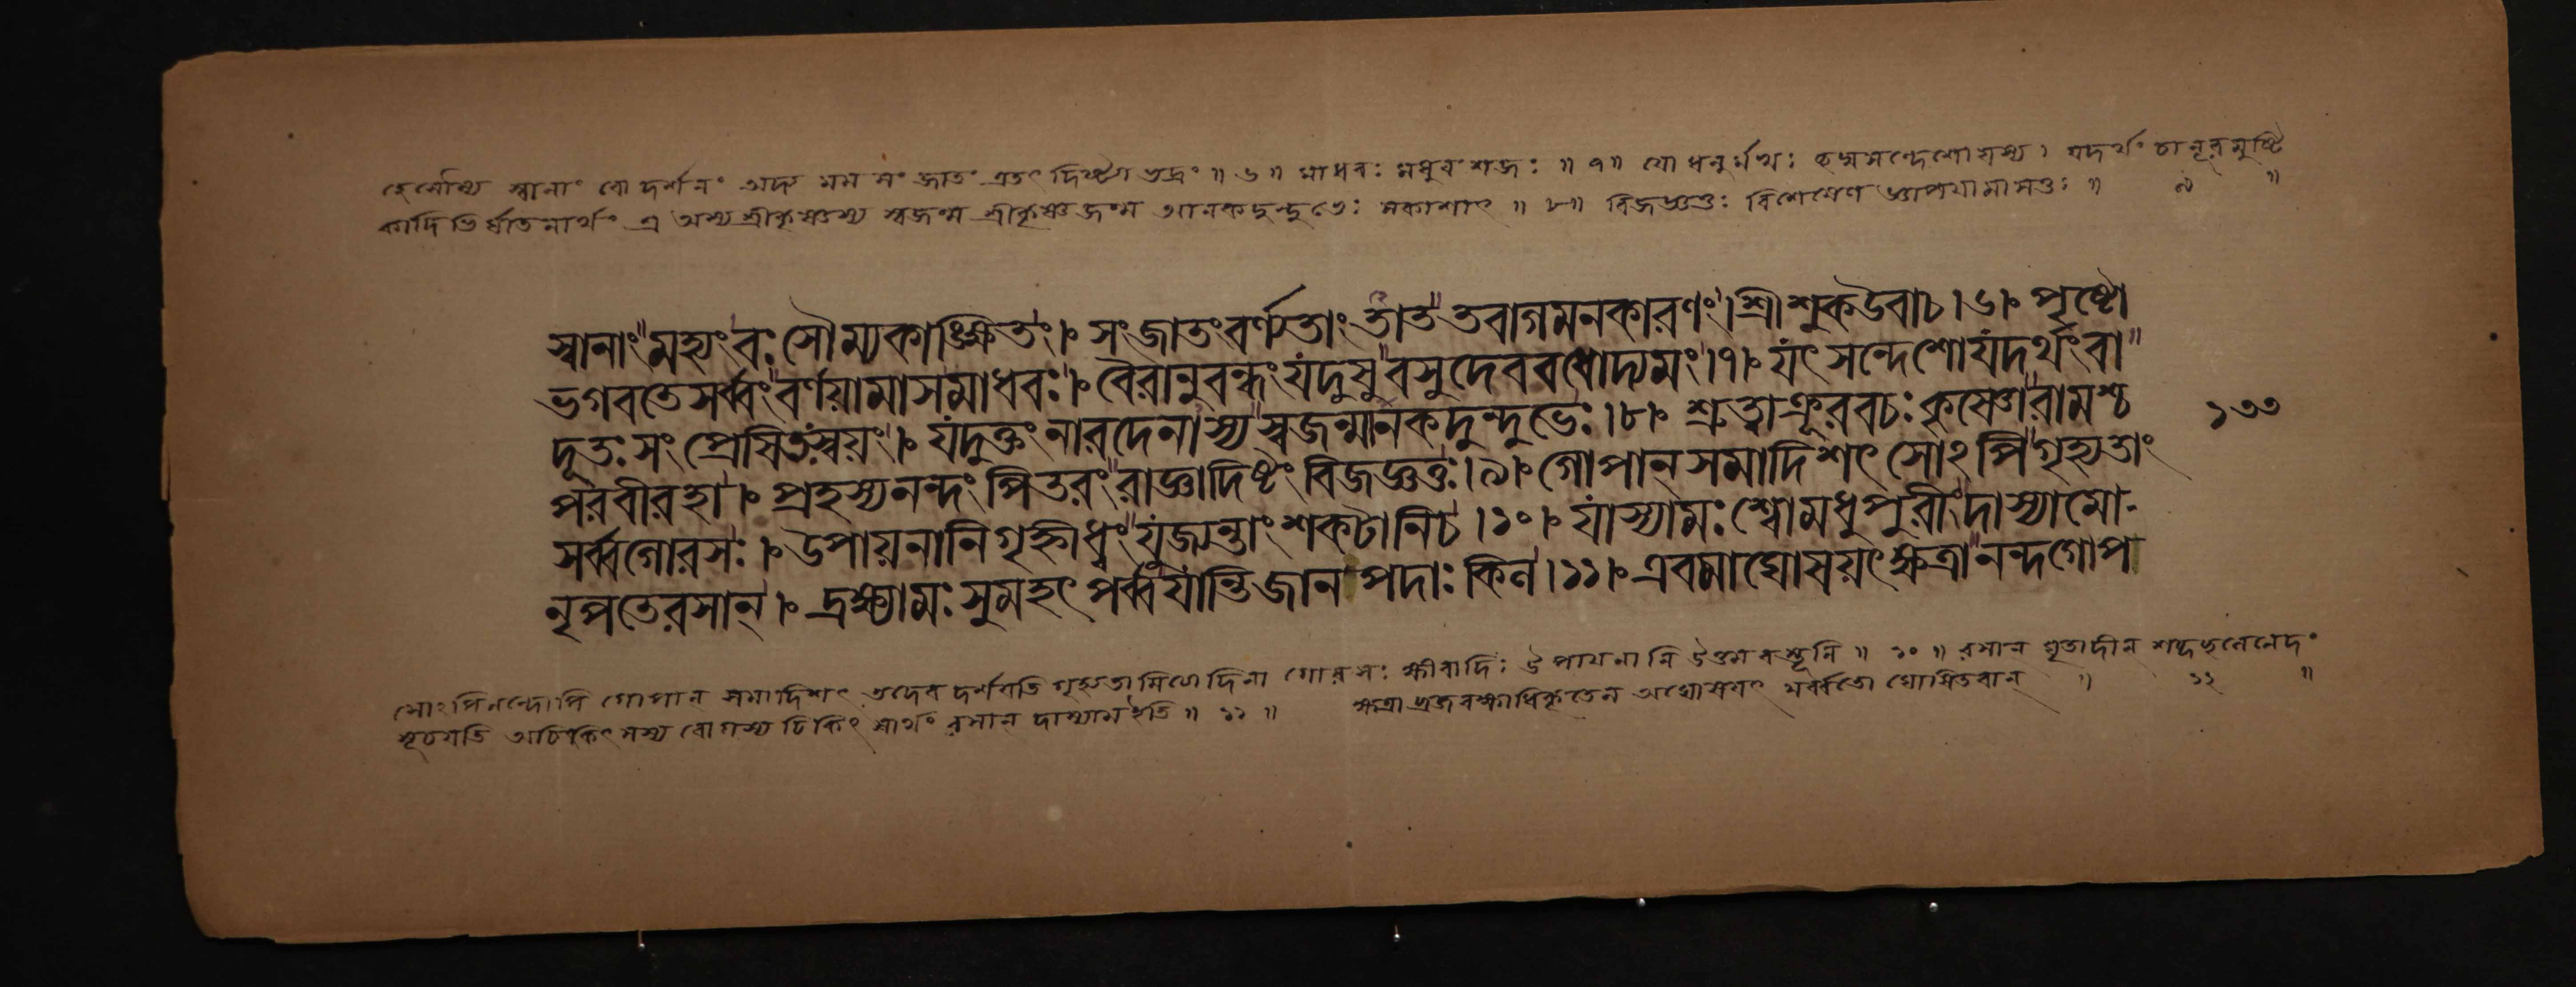 হে সৌম্য স্বানাং বো দর্শনং অদ্য মম সংজাতং এতৎ দিষ্ট্যা ভদ্রং ॥ ৬ ॥ মাধবঃ মধুবংশজঃ ॥ ৭ ॥ যো ধনুর্মখঃ সন্দেশো যস্য । যদর্থং চানূরমুষ্টি
কাদিভির্ঘাতনার্থং এ অস্য শ্রীকৃষ্ণস্য স্বজন্ম শ্রীকৃষ্ণজন্ম আনকদুন্দুভেঃ সকাশাৎ ॥ ৮॥ বিজজ্ঞতুঃ বিশেষেণ জ্ঞাপযামাসতুঃ ॥ ৯ ॥
স্বানাং মহ্যং বঃ সৌম্যকাঙ্ক্ষিতং ।ঃ সংজাতং বর্ণ্যতাং তাত তবাগমনকারণং । শ্রীশুকউবাচ ।৬।ঃ পৃষ্টো
ভগবতে সর্ব্বং বর্ণয়ামাস মাধবঃ ।ঃ বৈরানুবন্ধং যদুষু বসুদেববধোদ্যমং ।৭।ঃ যৎ সন্দেশো যদর্থং বা
দূতঃ সংপ্রেষিতঃ স্বয়ং ।ঃ যদুক্তং নারদেনাস্য স্বজন্মানকদুন্দুভেঃ ।৮।ঃ শ্রুত্বাক্রূরবচঃ কৃষ্ণো রামশ্চ ১৩৩
পরবীরহা ।ঃ প্রহস্য নন্দং পিতরং রাজ্ঞাদিষ্টং বিজজ্ঞতুঃ ।৯।ঃ গোপান্ সমাদিশৎ সোঽপি গৃহ্যতাং
সর্ব্বগোরসঃ ।ঃ উপায়নানি গৃহ্নীধ্বং যুজ্যন্তাং শকটানি চ ।১০।ঃ যাস্যামঃ শ্বো মধুপুরীং দাস্যামো
নৃপতে রসান্ ।ঃ দ্রক্ষ্যামঃ সুমহৎ পর্ব্ব যান্তি জানপদাঃ কিল ।১১।ঃ এবমাঘোষয়ৎ ক্ষত্রা নন্দগোপ
সোঽপি নন্দোপি গোপান সমাদিশৎ তদেব দর্শযতি গৃহ্যতামিত্যাদিনা গোরসঃ ক্ষীরাদিঃ উপাযনানি উত্তমবস্তূনি ॥ ১০ ॥ রসান ঘৃতাদীন
সূচযতি অচিকিৎসস্য রোগস্য চিকিৎসার্থং রসান দাস্যাম ইতি ॥ ১১ ॥ ক্ষত্রা ব্রজরক্ষাধিকৃতেন অঘোষযৎ সর্বতো ঘোষিতবান্ ॥ ১২ ॥